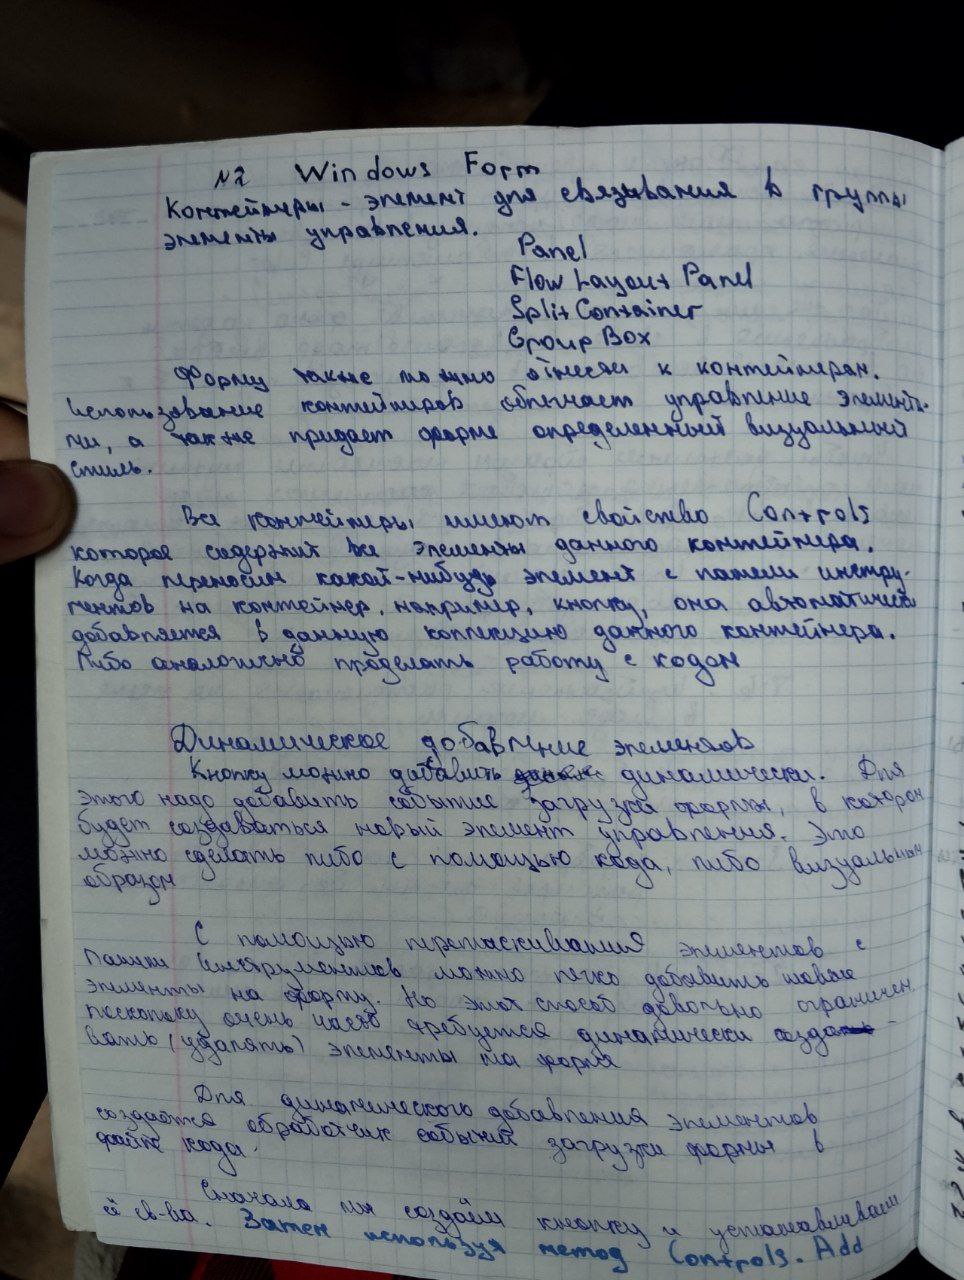 №2 Windows Form
Контейнеры - элемент для связывания в группы
элементы управления.
Panel
Flow Layout Panel
Split Container
Group Box
Форму также можно отнести к контейнерам.
Использование контейнеров облегчает управление элемента-
ми, а также придает форме определенный визуальный
стиль.
Все контейнеры имеют свойство Controls
которое содержит все элементы данного контейнера.
Когда переносим какой-нибудь элемент с панели инстру-
ментов на контейнер, например, кнопку, она автоматически
добавляется в данную коллекцию данного контейнера.
Либо аналогично проделать работу с кодом
Динамическое добавление элементов
Кнопку можно добавить динамически. Для
этого надо добавить событие загрузки формы, в котором
будет создаваться новый элемент управления. Это
можно сделать либо с помощью кода, либо визуальным
образом
С помощью перетаскивания элементов с
Панели Инструментов можно легко добавить новые
элементы на форму. Но этот способ довольно ограничен,
поскольку очень часто требуется динамически созда-
вать (удалять) элементы на форме
Для динамического добавления элементов
создается обработчик событий загрузки формы в
файле кода.
Сначала мы создаём кнопку и устанавливаем
её св-ва. Затем используя метод Controls. Add